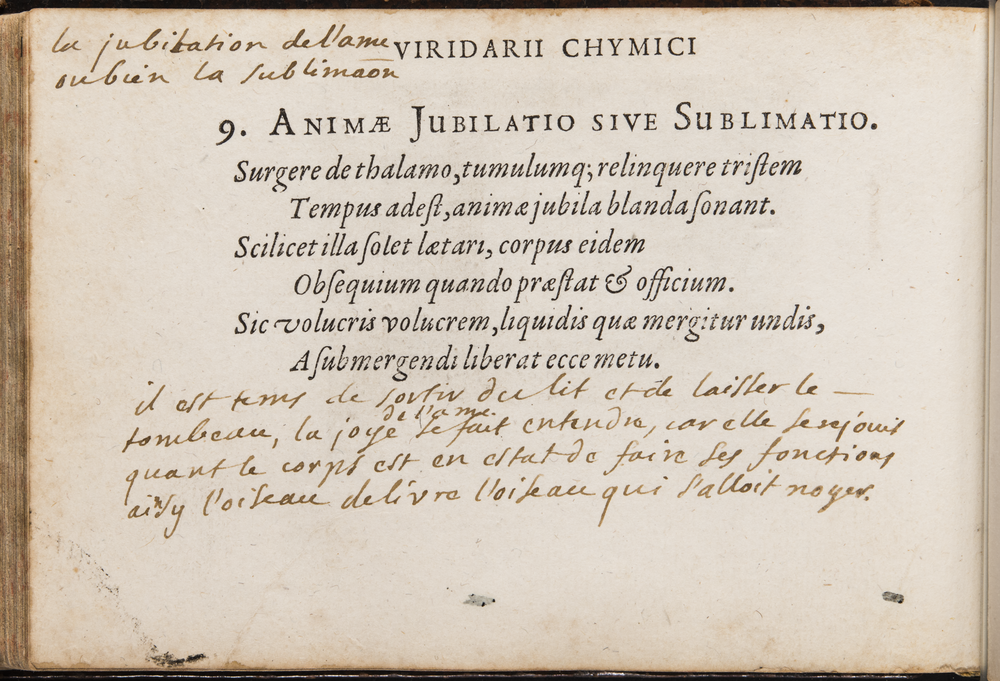 la jubilation de l'ame
VIRIDARII CHYMICI
ou bien la sublimaōn
9. ANIMÆ JUBILATIO SIVE SUBLIMATIO.
Surgere de thalamo, tumulumq; relinquere triſtem
Tempus adeſt, animæ jubila blanda ſonant.
Scilicet illa ſolet lætari, corpus eidem
Obſequium quando præſtat & officium.
Sic volucris volucrem, liquidis quæ mergitur undis,
A ſubmergendi liberat ecce metu.
il est tems de sortir du lit et de laisser le —
de l'ame
tombeau, la joye se fait entendre, car elle se rejouis
quant le corps est en estat de faire ses fonctions
ainsy l'oiseau delivre l'oiseau qui s'alloit noyer.